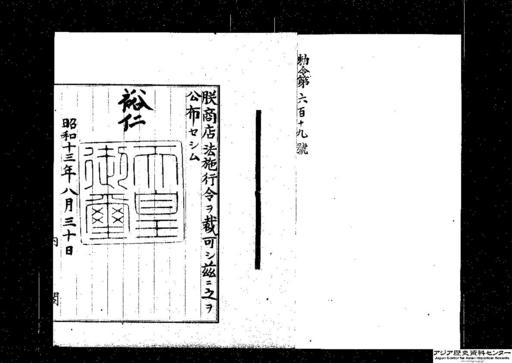 勅令第六百十九號
朕商店法施行令ヲ裁可シ茲ニ之ヲ
公布セシム
裕仁
天皇御璽
昭和十三年八月三十日
内閣
アジア歴史資料センター
Japan Center for Asian Historical Records